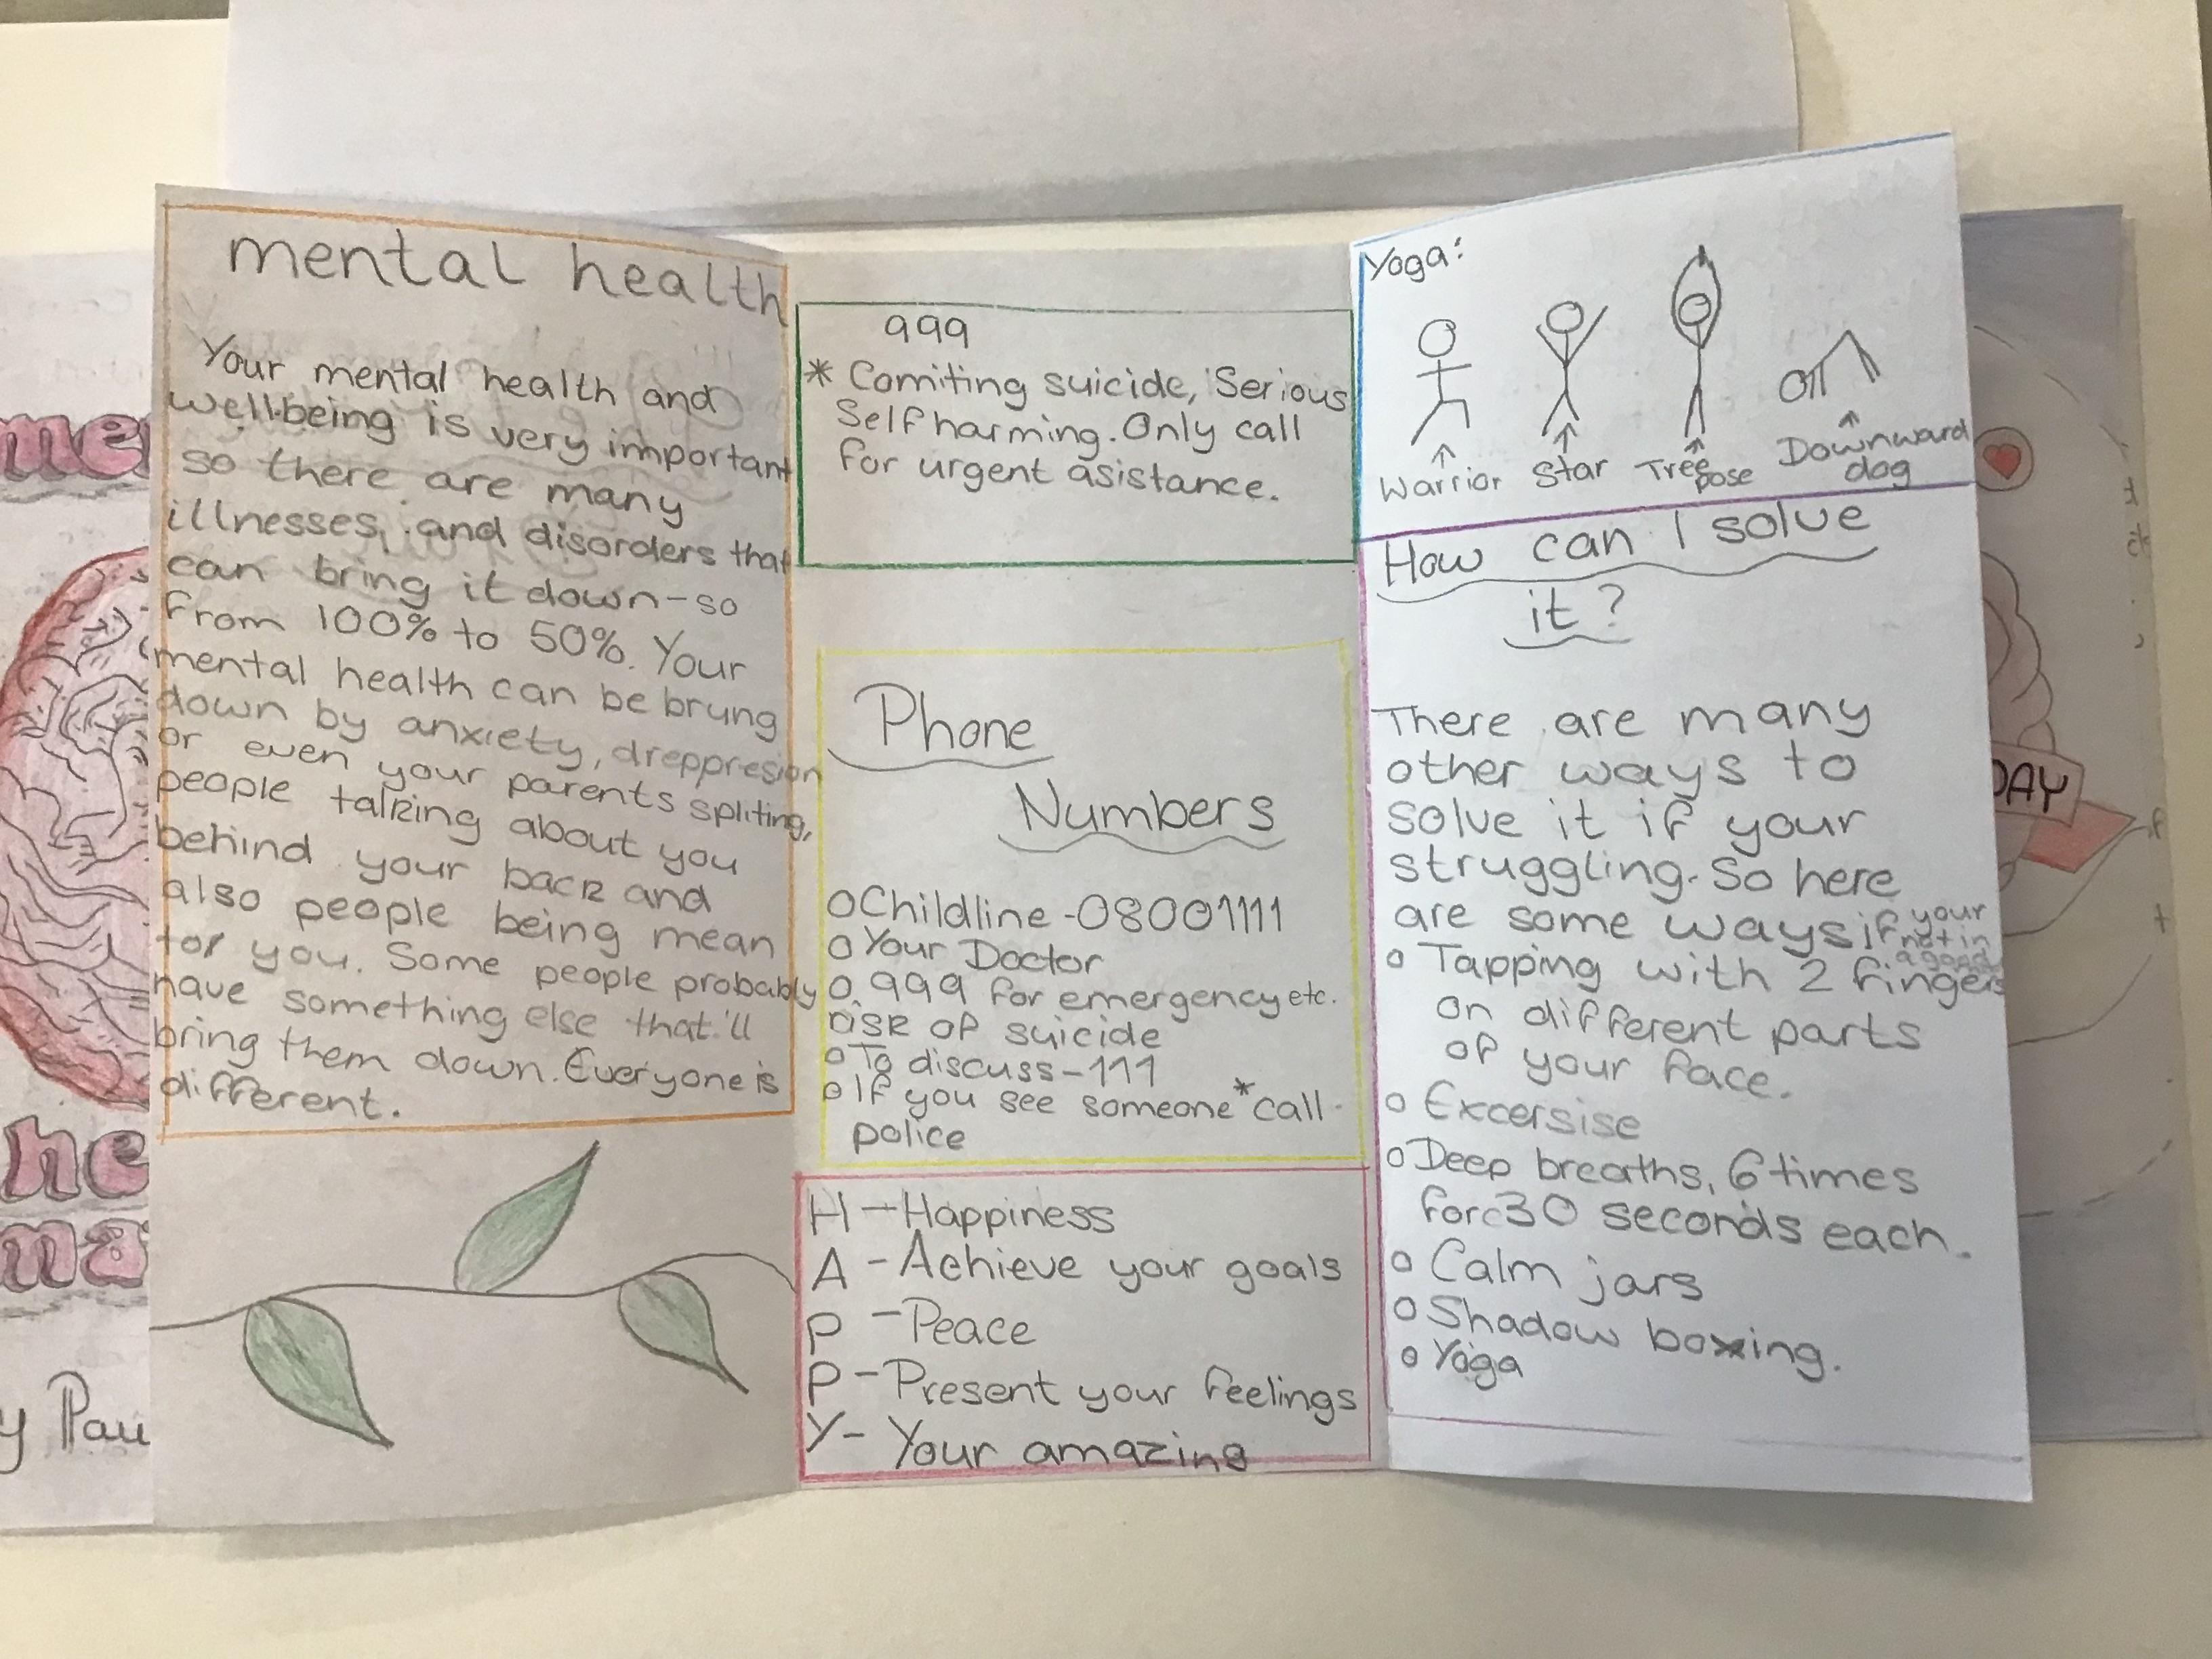 mental health
Your mental health and
wellbeing is very important
so there are many
illnesses, and disorders that
can bring it down-so
from 100% to 50%. Your
mental health can be brung
down by anxiety, dreppresion
or even your parents spliting,
people talking about you
behind your back and
also people being mean
to you. Some people probably
have something else that'll
bring them down. Everyone is
different.
999
* Comiting suicide, Serious
Self harming. Only call
for urgent asistance.
Phone
Numbers
Childline -08001111
Your Doctor
999 for emergency etc.
risk of suicide
To discuss-111
If you see someone * call
police
H - Happiness
A - Achieve your goals
P - Peace
P - Present your feelings
Y - Your amazing
Yoga:
Warrior Star Tree pose Downward dog
How can I solve
it?
There are many
other ways to
solve it if your
struggling. So here
are some ways if your
not in
a good
Tapping with 2 fingers
on different parts
of your face.
Excersise
Deep breaths, 6 times
for 30 seconds each.
Calm jars
Shadow boxing.
Yoga
me
he
ma
y Pau
DAY